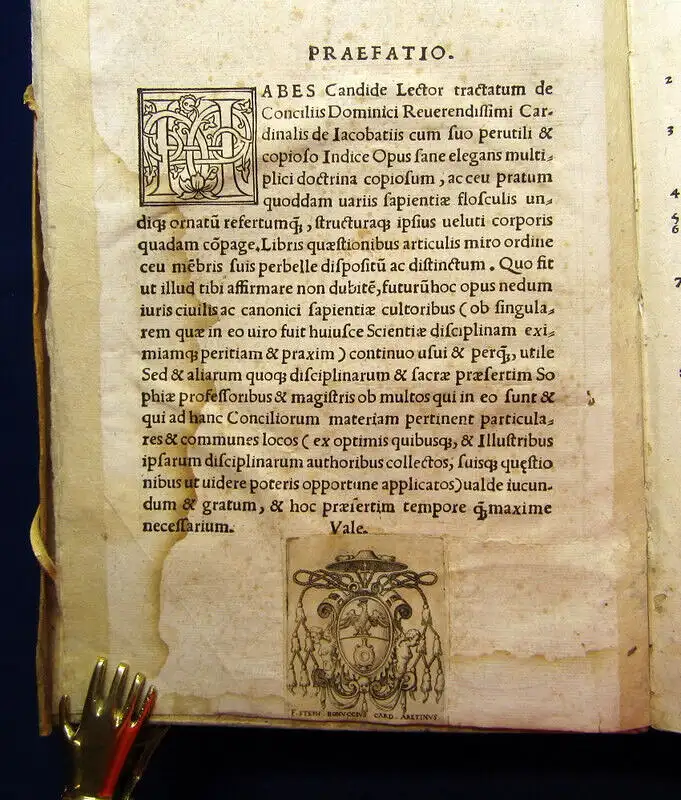 PRAEFATIO.
HABES Candide Lector tractatum de
Conciliis Dominici Reuerendissimi Car-
dinalis de Iacobatiis cum suo perutili &
copioso Indice Opus sane elegans multi⸗
plici doctrina copiosum, ac ceu pratum
quoddam uariis sapientiæ flosculis un⸗
diqꝫ ornatū refertumqꝫ, structuraqꝫ ipsius ueluti corporis
quadam cōpage, Libris quæstionibus articulis miro ordine
ceu mēbris suis perbelle dispositū ac distinctum. Quo fit
ut illud tibi affirmare non dubitē, futurū hoc opus nedum
iuris ciuilis ac canonici sapientiæ cultoribus (ob singula⸗
rem quæ in eo uiro fuit huiusce Scientiæ disciplinam exi⸗
miamqꝫ peritiam & praxim) continuo usui & perqꝫ, utile
Sed & aliarum quoqꝫ disciplinarum & sacræ præsertim So
phiæ professoribus & magistris ob multos qui in eo sunt &
qui ad hanc Conciliorum materiam pertinent particula⸗
res & communes locos (ex optimis quibusqꝫ, & Illustribus
ipsarum disciplinarum authoribus collectos, suisqꝫ quęstio
nibus ut uidere poteris opportune applicatos) ualde iucun⸗
dum & gratum, & hoc præsertim tempore q̄ꝫmaxime
necessarium. Vale.
F. STEPH BONVCCIVS CARD ARETINVS
2
3
4
5
6
7